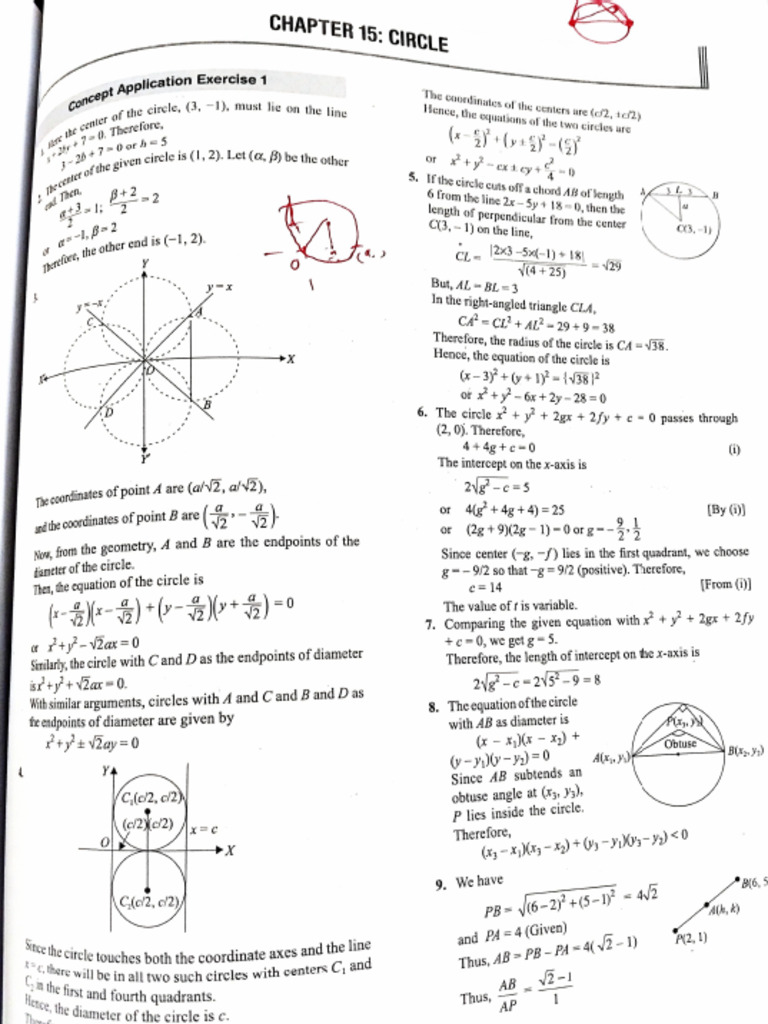 CHAPTER 15: CIRCLE
Concept Application Exercise 1
the center of the circle, (3, −1), must lie on the line
+ 7 = 0. Therefore,
3 − 2b + 7 = 0 or h = 5
2. The center of the given circle is (1, 2). Let (α, β) be the other
end. Then,
(α + 3)/2 = 1; (β + 2)/2 = 2
or α = −1, β = 2
Therefore, the other end is (−1, 2).
3.
Y
y = −x
y = x
C
A
X
O
D
B
Y′
The coordinates of point A are (a/√2, a/√2),
and the coordinates of point B are (a/√2, −a/√2).
Now, from the geometry, A and B are the endpoints of the
diameter of the circle.
Then, the equation of the circle is
(x − a/√2)(x − a/√2) + (y − a/√2)(y + a/√2) = 0
or x² + y² − √2ax = 0
Similarly, the circle with C and D as the endpoints of diameter
is x² + y² + √2ax = 0.
With similar arguments, circles with A and C and B and D as
the endpoints of diameter are given by
x² + y² ± √2ay = 0
Y
C₁(c/2, c/2)
(c/2)(c/2)
x = c
O
X
C₂(c/2, c/2)
Since the circle touches both the coordinate axes and the line
x = c, there will be in all two such circles with centers C₁ and
C₂ in the first and fourth quadrants.
Hence, the diameter of the circle is c.
The coordinates of the centers are (c/2, ±c/2)
Hence, the equations of the two circles are
(x − c/2)² + (y ± c/2)² = (c/2)²
or x² + y² − cx ± cy + c²/4 = 0
5. If the circle cuts off a chord AB of length
6 from the line 2x − 5y + 18 = 0, then the
length of perpendicular from the center
C(3, − 1) on the line,
A 3 L 3 B
C(3, −1)
CL = |2×3 −5×(−1) + 18|/√(4 + 25) = √29
But, AL = BL = 3
In the right-angled triangle CLA,
CA² = CL² + AL² = 29 + 9 = 38
Therefore, the radius of the circle is CA = √38.
Hence, the equation of the circle is
(x − 3)² + (y + 1)² = {√38}²
or x² + y² − 6x + 2y − 28 = 0
6. The circle x² + y² + 2gx + 2fy + c = 0 passes through
(2, 0). Therefore,
4 + 4g + c = 0 (i)
The intercept on the x-axis is
2√(g² − c) = 5
or 4(g² + 4g + 4) = 25 [By (i)]
or (2g + 9)(2g − 1) = 0 or g = −9/2, 1/2
Since center (−g, −f) lies in the first quadrant, we choose
g = − 9/2 so that −g = 9/2 (positive). Therefore,
c = 14 [From (i)]
The value of t is variable.
7. Comparing the given equation with x² + y² + 2gx + 2fy
+ c = 0, we get g = 5.
Therefore, the length of intercept on the x-axis is
2√(g² − c) = 2√(5² − 9) = 8
8. The equation of the circle
with AB as diameter is
(x − x₁)(x − x₂) +
(y − y₁)(y − y₂) = 0
Since AB subtends an
obtuse angle at (x₃, y₃),
P lies inside the circle.
Therefore,
P(x₃, y₃)
Obtuse
A(x₁, y₁)
B(x₂, y₂)
(x₃ − x₁)(x₃ − x₂) + (y₃ − y₁)(y₃ − y₂) < 0
9. We have
PB = √((6 − 2)² + (5 − 1)²) = 4√2
and PA = 4 (Given)
Thus, AB = PB − PA = 4(√2 − 1)
Thus, AB/AP = (√2 − 1)/1
B(6, 5
A(h, k)
P(2, 1)